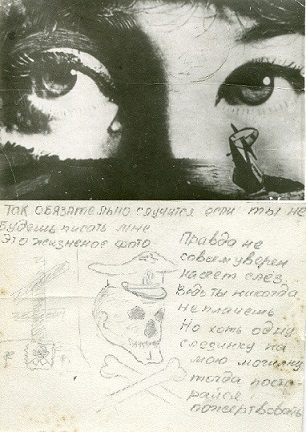 Так обязательно случится если ты не
будешь писать мне.
Это жизненое фото
Правда не
совсем уверен
насчет слёз,
Ведь ты никогда
не плачешь
Но хоть одну
слезинку на
мою могилку
тогда поста
райся
пожертвовать